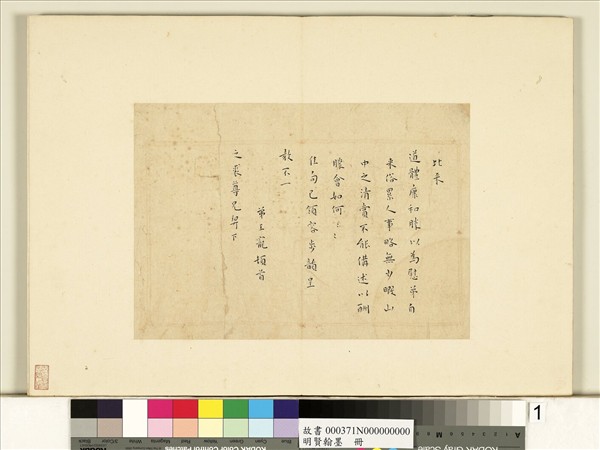 比来
道體康和勝以為慰弟自
来俗累人事略無少暇山
中之清賞不能備述以酬
勝會如何〻〻
佳句已領容步韻呈
教不一
弟王寵頓首
之裘尊兄舁下
故書 000371N000000000
明賢翰墨 冊
1